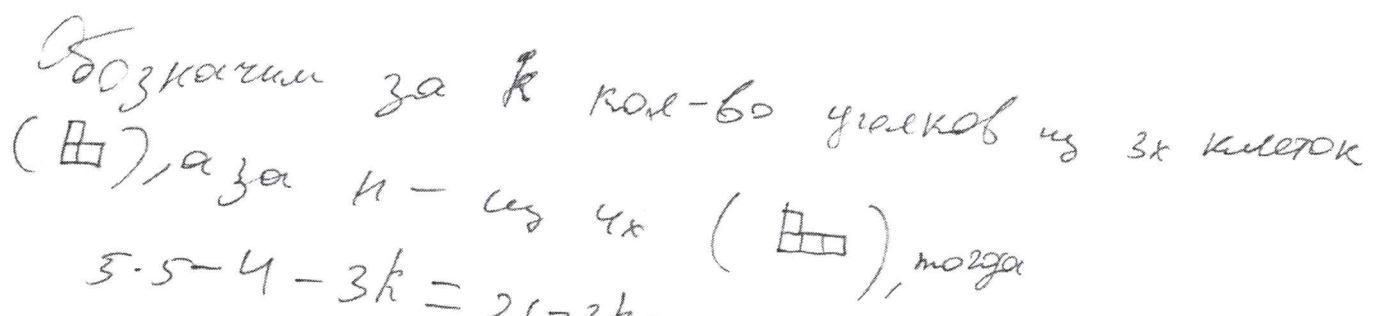 Обозначим за k кол-во уголков из 3х клеток
( ), а за n — из 4х ( ), тогда
5·5-4-3k=21-3k